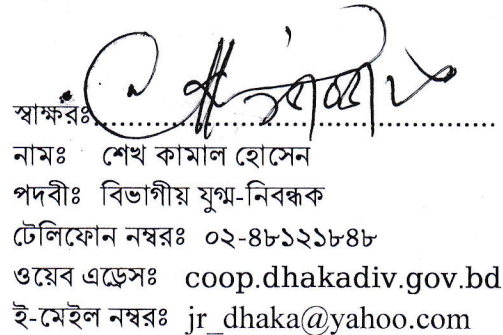 স্বাক্ষরঃ................................................
নামঃ শেখ কামাল হোসেন
পদবীঃ বিভাগীয় যুগ্ম-নিবন্ধক
টেলিফোন নম্বরঃ ০২-৪৮১২১৮৪৮
ওয়েব এড্রেসঃ coop.dhakadiv.gov.bd
ই-মেইল নম্বরঃ jr_dhaka@yahoo.com